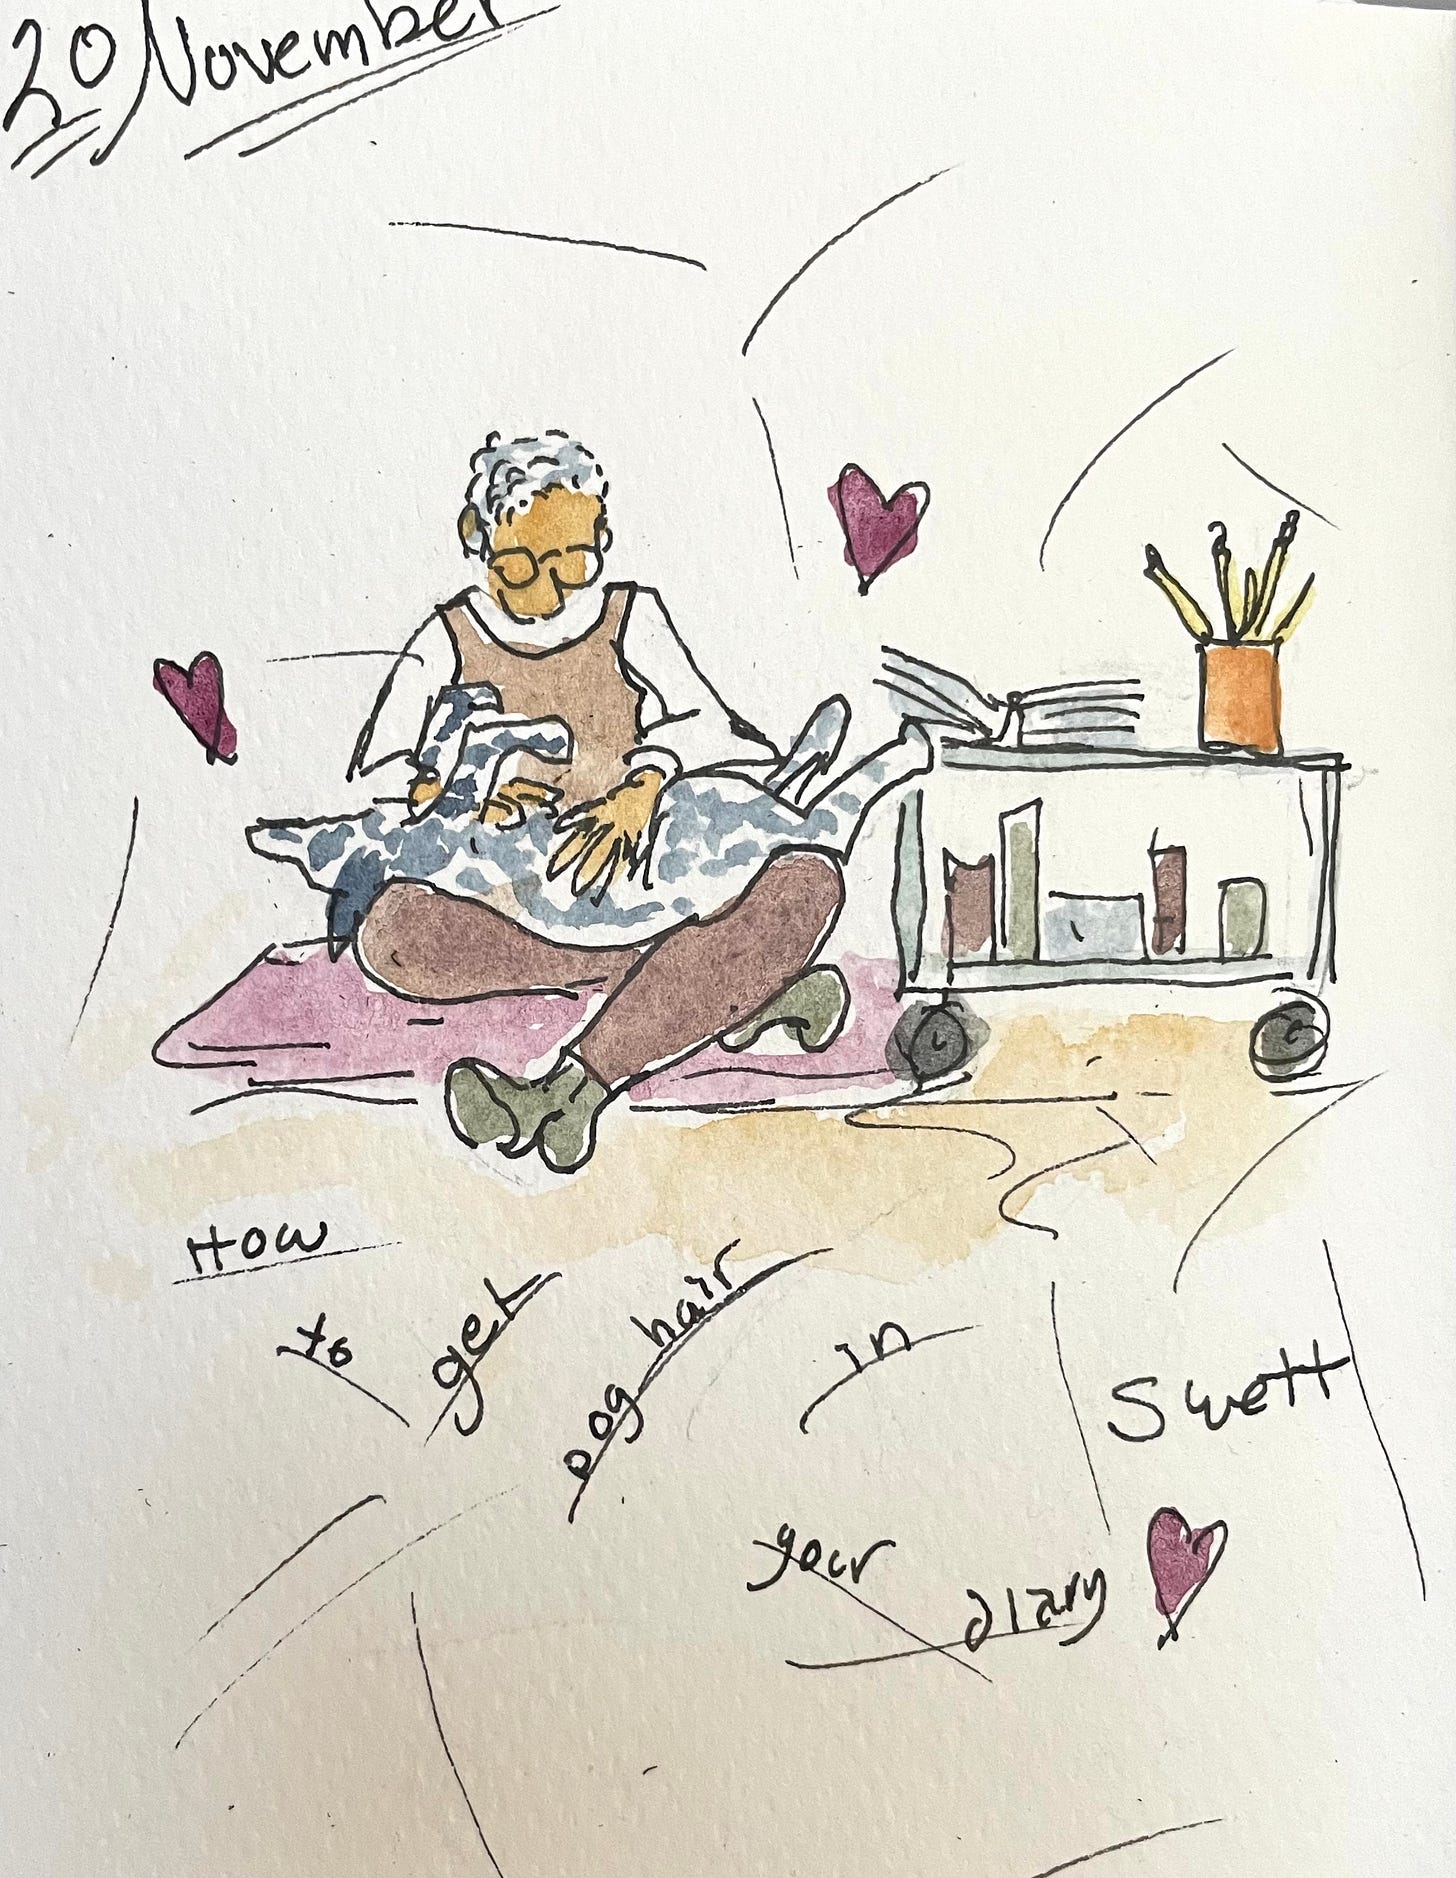 20 November
How
to get Dog hair in
your diary
Swett